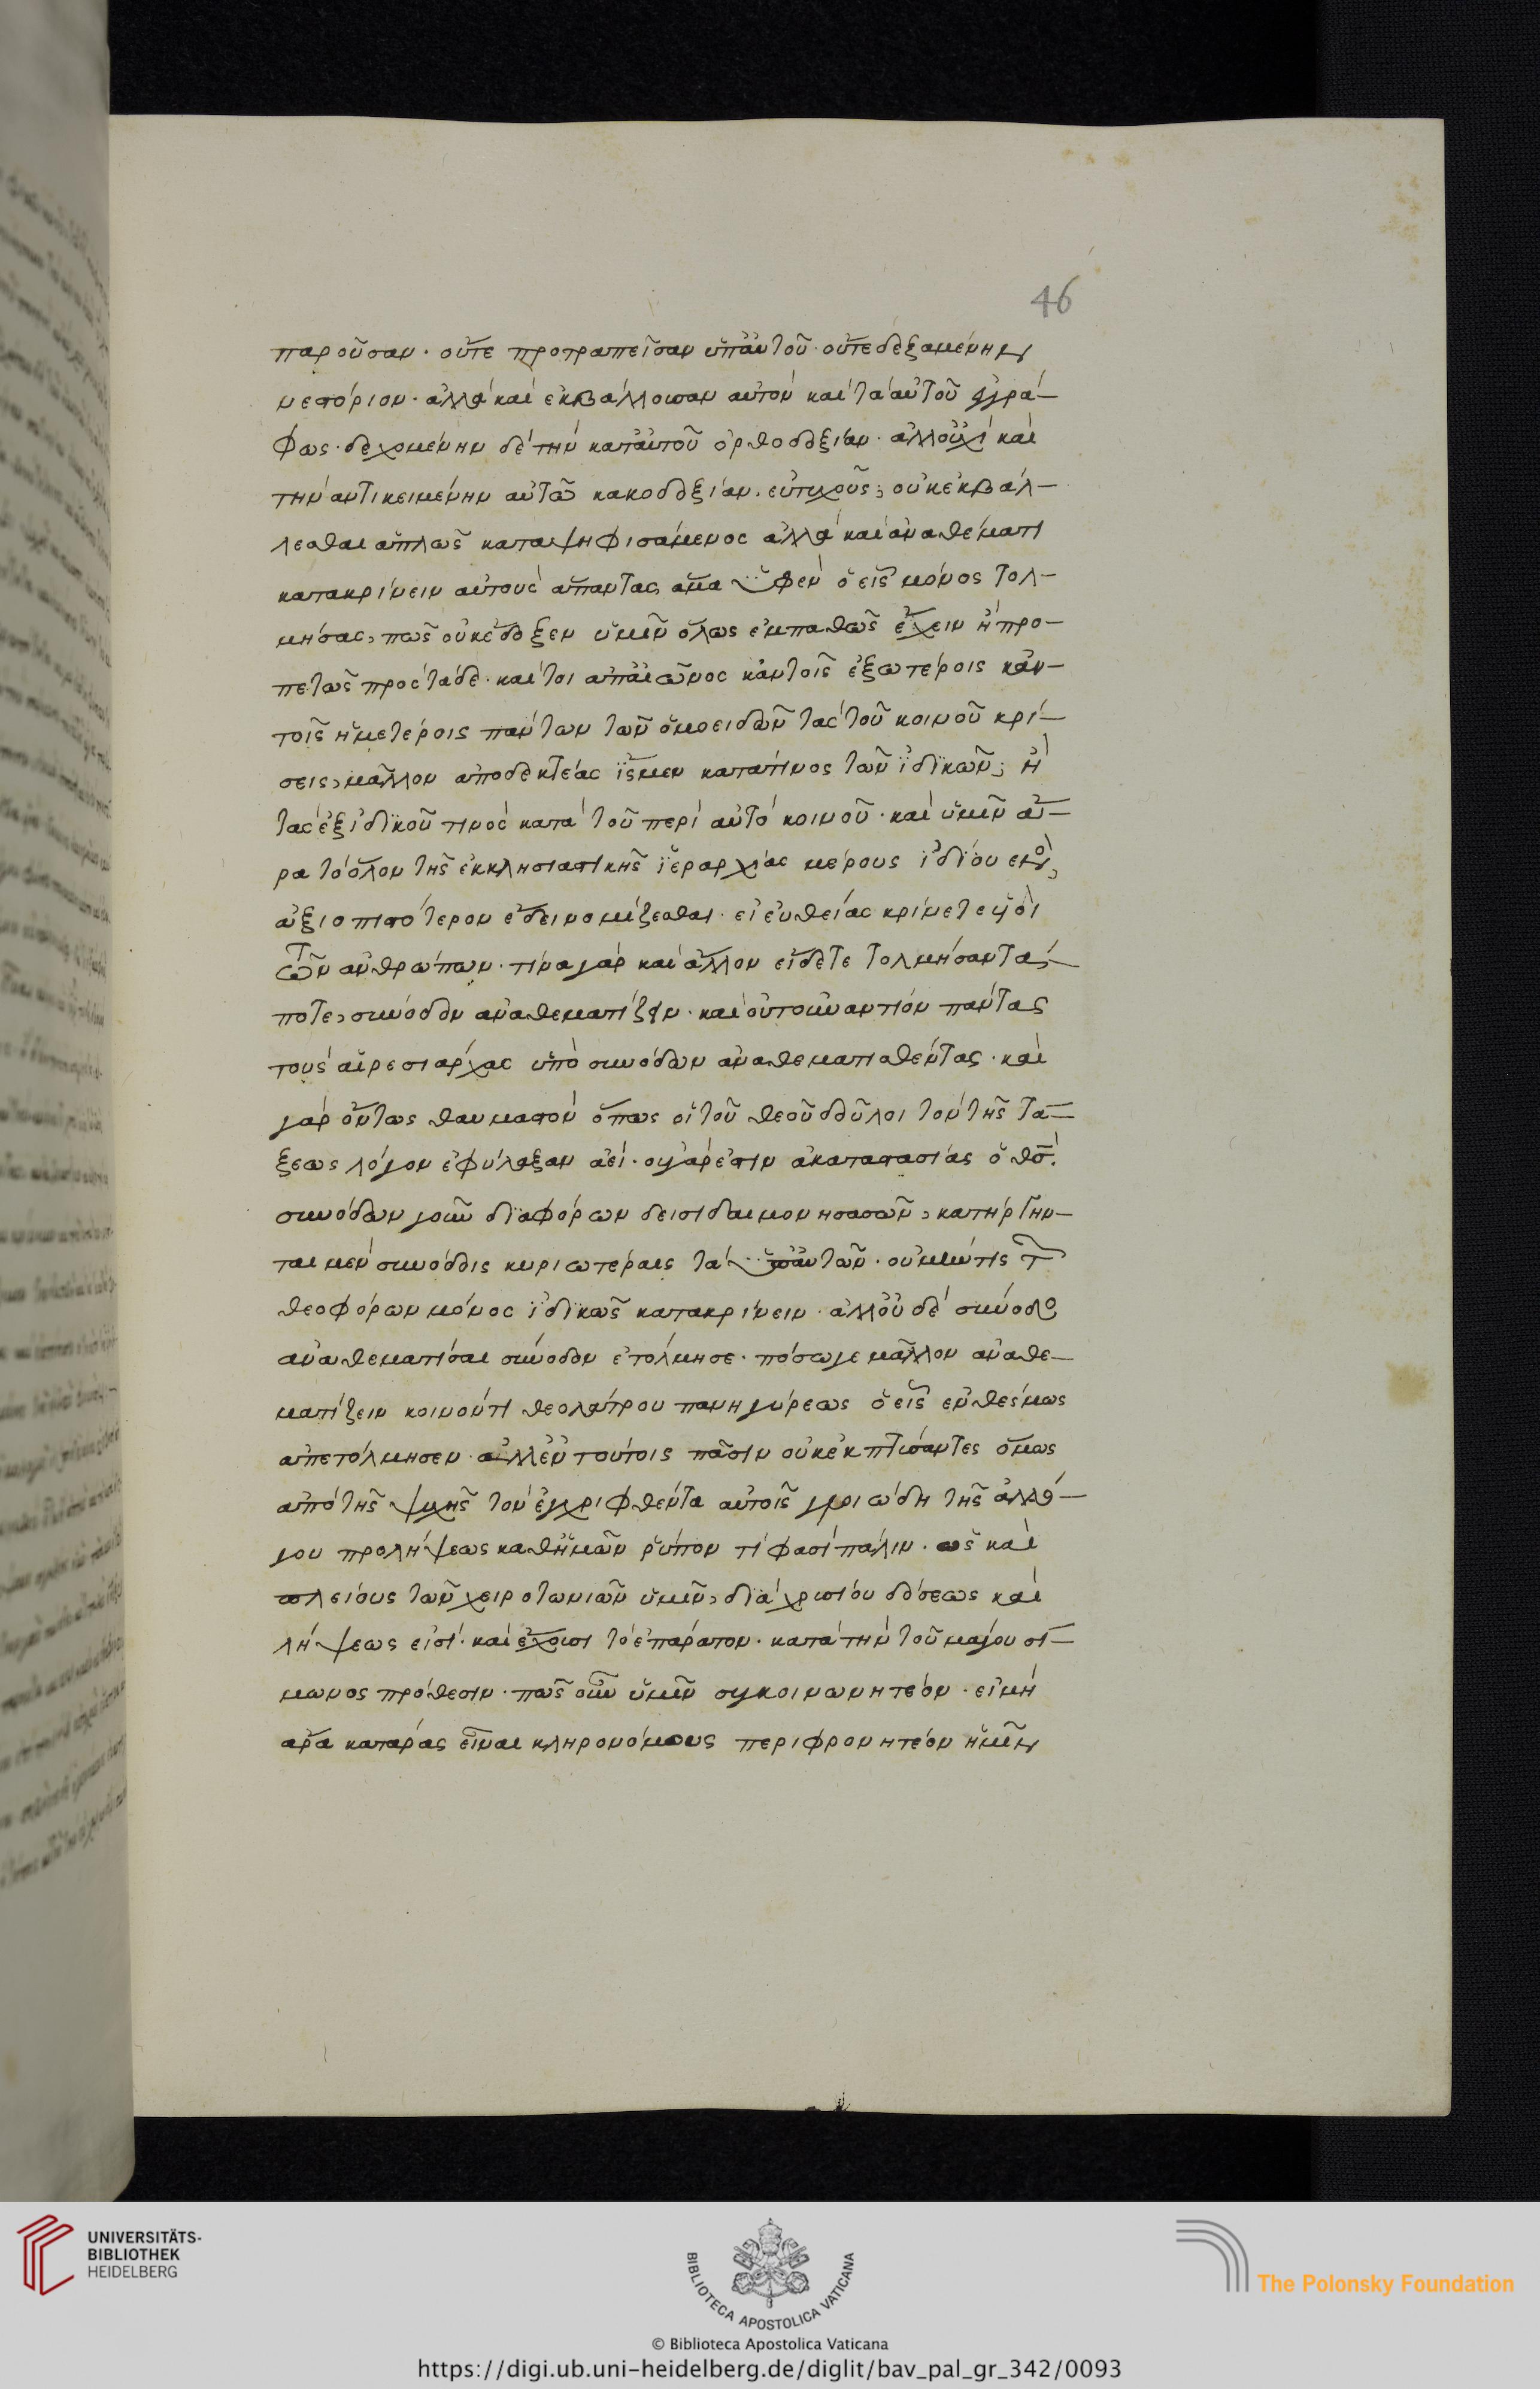 46
παροῦσαν· οὔτε προτραπεῖσαν ὑπ' αὐτοῦ· οὔτε δεξαμένην
νεστόριον· ἀλλὰ καὶ ἐκβάλλουσαν αὐτὸν καὶ τὰ αὐτοῦ ἐγγρά-
φως· δεχομένην δὲ τὴν κατ' αὐτοῦ ὀρθοδοξίαν· ἀλλ' οὐχὶ καὶ
τὴν ἀντικειμένην αὐτῶ κακοδοξίαν. εὐτυχοῦς; οὐκ ἐκβάλ-
λεσθαι ἁπλῶς καταψηφισάμενος ἀλλὰ καὶ ἀναθέματι
κατακρίνειν αὐτοὺς ἅπαντας, ἅμα ὑφὲν ὁ εἷς μόνος τολ-
μήσας, πῶς οὐκ ἔδοξεν ὑμῖν ὅλως ἐμπαθῶς ἔχειν ἢ προ-
πετῶς πρὸς τάδε· καίτοι ἀπ' αἰῶνος κἀν τοῖς ἐξωτέροις κἀν-
τοῖς ἡμετέροις πάντων τῶν ὁμοειδῶν τὰς τοῦ κοινοῦ κρί-
σεις, μᾶλλον ἀποδεκτέας ἴσμεν κατά τινος τῶν ἰδικῶν; ἢ
τὰς ἐξ ἰδικοῦ τινὸς κατὰ τοῦ περὶ αὐτὸ κοινοῦ· καὶ ὑμῖν ἄ-
ρα τὸ ὅλον τῆς ἐκκλησιαστικῆς ἱεραρχίας μέρους ἰδίου
ἀξιοπιστότερον ἔδει νομίζεσθαι· εἰ εὐθείας κρίνετε υἱοὶ
τῶν ἀνθρώπων· τίνα γὰρ καὶ ἄλλον εἴδετε τολμήσαντά-
ποτε, σύνοδον ἀναθεματίζειν· καὶ οὐ τοὐναντίον πάντας
τοὺς αἱρεσιάρχας ὑπὸ συνόδων ἀναθεματισθέντας· καὶ
γὰρ ὄντως θαυμαστὸν ὅπως οἱ τοῦ θεοῦ δοῦλοι τὸν τῆς τά-
ξεως λόγον ἐφύλαξαν ἀεί· οὐ γάρ ἐστιν ἀκαταστασίας ὁ θσ̄.
συνόδων γοῦν διαφόρων δεισιδαιμονησασῶν, κατήρτην-
ται μὲν συνόδοις κυριωτέραις τὰ ὑπ' αὐτῶν· οὐ μὴν τις τ῀
θεοφόρων μόνος ἰδικῶς κατακρίνειν· ἀλλ' οὐδὲ σύνοδο
ἀναθεματίσαι σύνοδον ἐτόλμησε· πόσω γε μᾶλλον ἀναθε-
ματίζειν κοινόν τι θεολάτρου πανηγύρεως ὁ εἷς ἐνθέσμως
ἀπετόλμησεν· ἀλλ' ἐν τούτοις πᾶσιν οὐκ ἐκπτύσαντες ὅμως
ἀπὸ τῆς ψυχῆς τὸν ἐγχριφθέντα αὐτοῖς γριώδη τῆς ἀλό-
γου προλήψεως καθ' ἡμῶν ῥύπον τί φασὶ πάλιν· ὡς καὶ
πλείους τῶν χειροτονιῶν ὑμῖν, διὰ χρυσίου δόσεως καὶ
λήψεως εἰσί· καὶ ἔχουσι τὸ ἐπάρατον· κατὰ τὴν τοῦ μάγου σί-
μωνος πρόθεσιν· πῶς οὖν ὑμῖν συγκοινωνητέον· εἰ μὴ
ἄρα κατάρας εἶναι κληρονόμους περιφρονητέον ἡμῖν
UNIVERSITÄTS-
BIBLIOTHEK
HEIDELBERG
BIBLIOTECA APOSTOLICA VATICANA
The Polonsky Foundation
© Biblioteca Apostolica Vaticana
https://digi.ub.uni-heidelberg.de/diglit/bav_pal_gr_342/0093